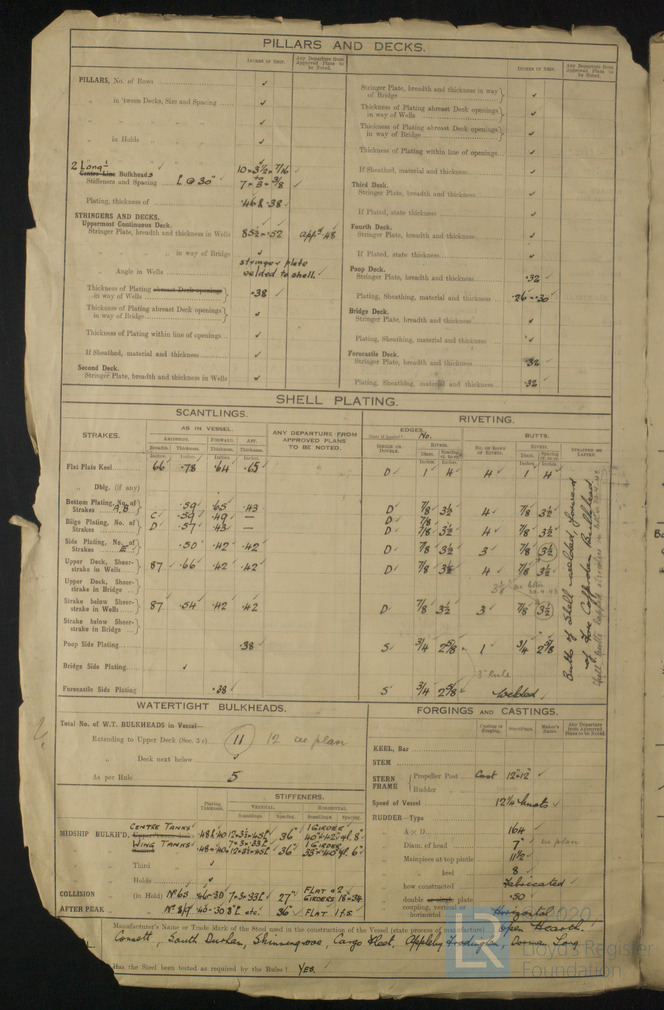 PILLARS AND DECKS.
INCHES IN SHIP.
Any Departure from Approved Plans to be Noted.
INCHES IN SHIP.
Any Departure from Approved Plans to be Noted.
PILLARS, No. of Rows
„ in 'tween Decks, Size and Spacing
„ in Holds
2 Long'l
Centre Line Bulkheads
Stiffeners and Spacing L @ 30"
Plating, thickness of .46 & .38
STRINGERS AND DECKS.
Uppermost Continuous Deck.
Stringer Plate, breadth and thickness in Wells
„ in way of Bridge
stringer plate
Angle in Wells welded to shell.
Thickness of Plating abreast Deck openings in way of Wells .38
Thickness of Plating abreast Deck openings in way of Bridge
Thickness of Plating within line of openings
If Sheathed, material and thickness
Second Deck.
Stringer Plate, breadth and thickness in Wells
Stringer Plate, breadth and thickness in way of Bridge
Thickness of Plating abreast Deck openings in way of Wells
Thickness of Plating abreast Deck openings in way of Bridge
Thickness of Plating within line of openings
If Sheathed, material and thickness
Third Deck.
Stringer Plate, breadth and thickness
If Plated, state thickness
Fourth Deck.
Stringer Plate, breadth and thickness
If Plated, state thickness
Poop Deck.
Stringer Plate, breadth and thickness .32
Plating, Sheathing, material and thickness .26 - .30
Bridge Deck.
Stringer Plate, breadth and thickness
Plating, Sheathing, material and thickness
Forecastle Deck.
Stringer Plate, breadth and thickness .32
Plating, Sheathing, material and thickness .32
SHELL PLATING.
SCANTLINGS.
RIVETING.
STRAKES.
AS IN VESSEL.
ANY DEPARTURE FROM APPROVED PLANS TO BE NOTED.
EDGES. No.
BUTTS.
AMIDSHIPS.
FORWARD.
AFT.
Breadth.
Thickness.
Thickness.
Thickness.
SINGLE OR DOUBLE.
RIVETS.
NO. OF ROWS OF RIVETS.
RIVETS.
STRAPPED OR LAPPED.
Flat Plate Keel 66 .78 .64 .65 D 1 4 4 1 4
„ Dblg. (if any)
Bottom Plating, No. of Strakes A, B .59 .65 .43 D 7/8 3½ 4 7/8 3½
C .59 .49 — D 7/8
Bilge Plating, No. of Strakes D .57 .43 — D 7/8 3½ 4 7/8 3½
Side Plating, No. of Strakes E .50 .42 .42 D 7/8 3½ 3 7/8 3½
Upper Deck, Sheer-strake in Wells 87 .66 .42 .42 D 7/8 3½ 4 7/8 3½
Upper Deck, Sheer-strake in Bridge
Strake below Sheer-strake in Wells 87 .54 .42 .42 D 7/8 3½ 3 7/8 3½
Strake below Sheer-strake in Bridge
Poop Side Plating .38 S 3/4 2 5/8 1 3/4 2 5/8
Bridge Side Plating
Forecastle Side Plating .38 S 3/4 2 5/8 welded
Butts of Shell welded, forward
of Fore Cofferdam Bulkhead
WATERTIGHT BULKHEADS.
Total No. of W.T. BULKHEADS in Vessel—
Extending to Upper Deck (Sec. 3 c) 11 12 as plan
„ Deck next below
As per Rule 5
Plating Thickness.
STIFFENERS.
VERTICAL.
HORIZONTAL.
Scantlings.
Spacing.
Scantlings.
Spacing.
MIDSHIP BULKH'D, CENTRE TANKS 36" 1 GIRDER
WING TANKS 36" 1 GIRDER
„ Third
„ Holds
COLLISION (in Hold) No 65 27" FLAT
AFTER PEAK 36" FLAT
FORGINGS AND CASTINGS.
Casting or Forging.
Scantlings.
Maker's Name.
Any Departure from Approved Plans to be Noted.
KEEL, Bar
STEM
STERN FRAME
Propeller Post Cast 12"×12"
„ Rudder
Speed of Vessel 12¼ knots
RUDDER—Type
A × D 164
Diam. of head 7" as plan
Mainpiece at top pintle 11½
„ heel 8
how constructed Fabricated
double or single plate .50
coupling, vertical or horizontal Horizontal
Manufacturer's Name or Trade Mark of the Steel used in the construction of the Vessel (state process of manufacture) Open Hearth.
Consett, South Durham, Skinningrove, Cargo Fleet, Appleby Frodingham, Dorman Long
Has the Steel been tested as required by the Rules? Yes.
2020
Lloyd's Register
Foundation